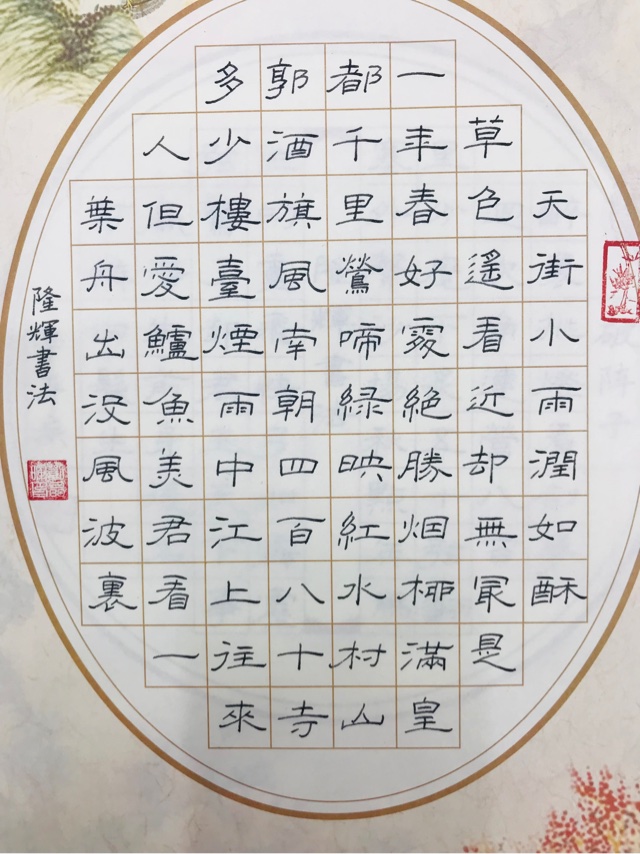 天街小雨潤如酥
草色遙看近却無冣是
一年春好處絕勝烟柳滿皇
都千里鶯啼綠映紅水村山
郭酒旗風南朝四百八十寺
多少樓臺煙雨中江上往來
人但愛鱸魚美君看一
葉舟出沒風波裏
隆輝書法